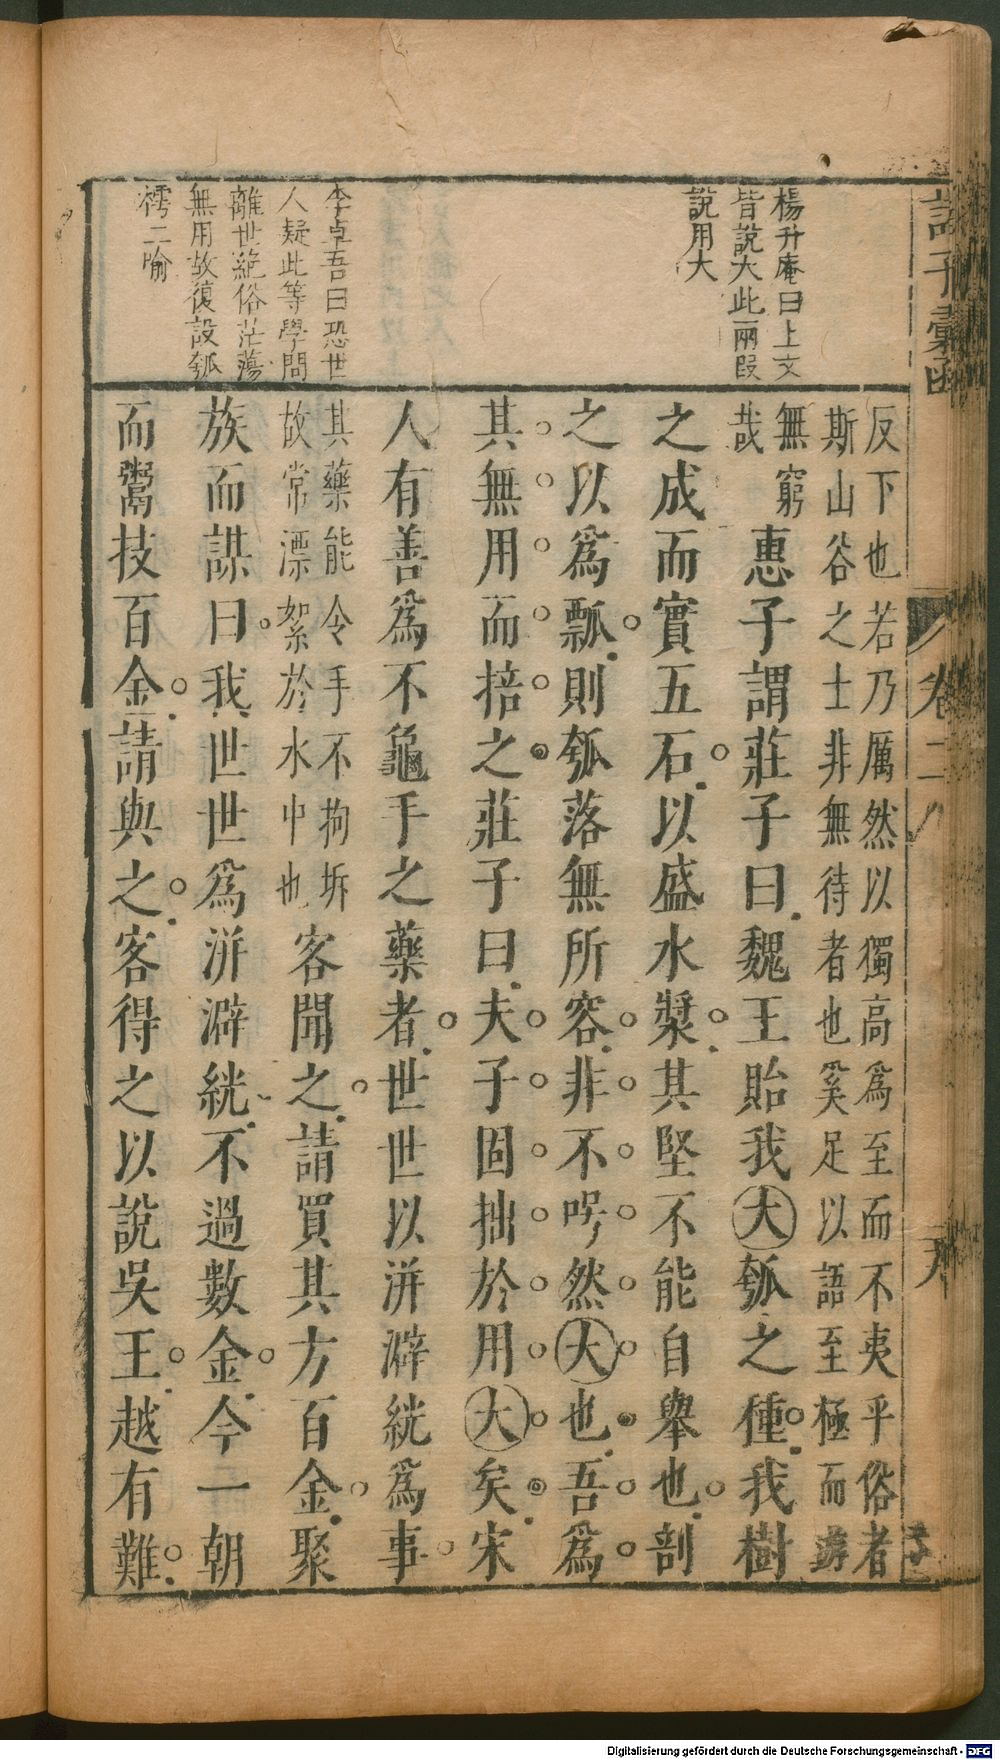 諸子彙函
卷二
九
楊升庵曰上文
皆說大此兩段
說用大
李卓吾曰恐世
人疑此等學問
離世絶俗茫蕩
無用故復設瓠
樗二喻
反下也若乃厲然以獨高爲至而不夷乎俗者
斯山谷之士非無待者也奚足以語至極而遊
無窮
哉
惠子謂莊子曰魏王貽我大瓠之種我樹
之成而實五石以盛水漿其堅不能自舉也剖
之以爲瓢則瓠落無所容非不呺然大也吾爲
其無用而掊之莊子曰夫子固拙於用大矣宋
人有善爲不龜手之藥者世世以洴澼絖爲事
其藥能令手不拘坼
故常漂絮於水中也
客聞之請買其方百金聚
族而謀曰我世世爲洴澼絖不過數金今一朝
而鬻技百金請與之客得之以說吳王越有難
Digitalisierung gefördert durch die Deutsche Forschungsgemeinschaft - DFG